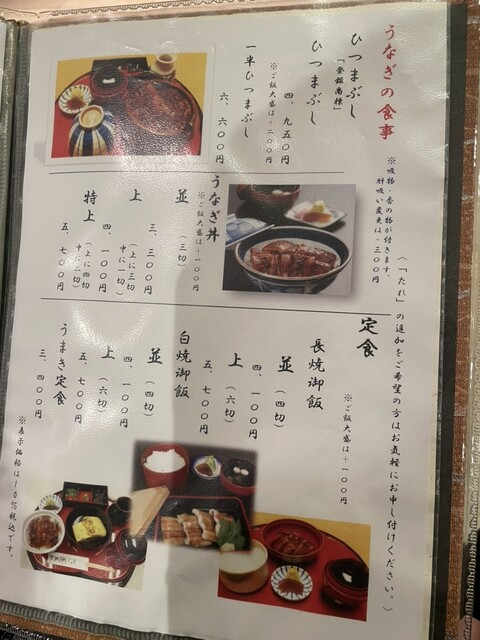 うなぎの食事
※吸物・香の物が付きます。
肝吸い変更は+三〇〇円
(「たれ」の追加をご希望の方はお気軽にお申し付けください。)
ひつまぶし
「登録商標」
ひつまぶし
四、九五〇円
※ご飯大盛は+二〇〇円
一半ひつまぶし
六、六〇〇円
うなぎ丼
※ご飯大盛は+一〇〇円
並
(三切)
三、三〇〇円
上
(上に三切
中に一切)
四、一〇〇円
特上
(上に四切
中に二切)
五、七〇〇円
定食
※ご飯大盛は+一〇〇円
長焼御飯
並
(四切)
四、一〇〇円
上
(六切)
五、七〇〇円
白焼御飯
並
(四切)
四、一〇〇円
上
(六切)
五、七〇〇円
うまき定食
三、四〇〇円
※表示価格は10%税込です。